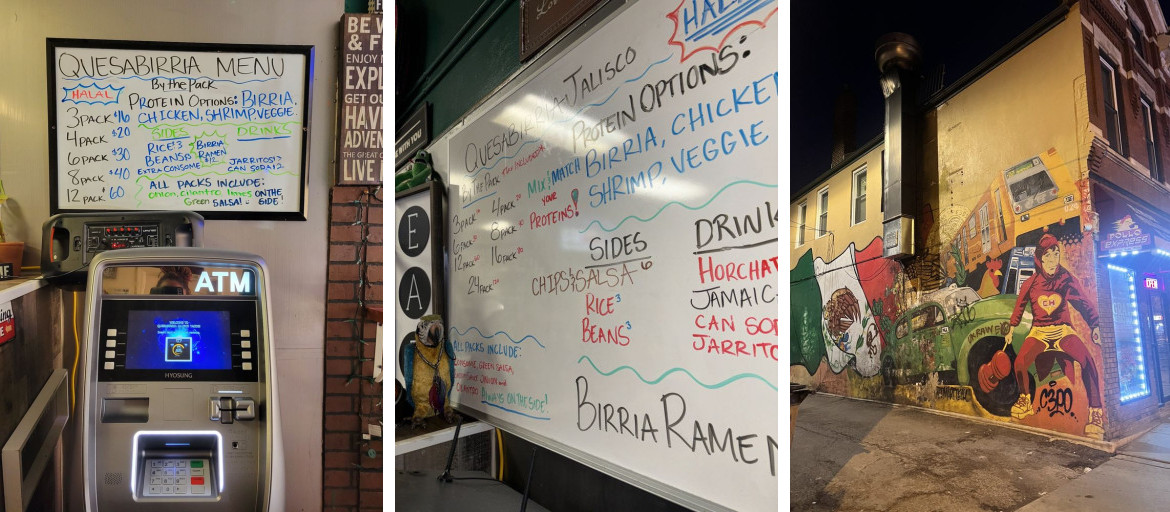 QUESABIRRIA MENU
By the Pack
HALAL
PROTEIN OPTIONS: BIRRIA,
CHICKEN, SHRIMP, VEGGIE.
3 PACK $16
4 PACK $20
6 PACK $30
8 PACK $40
12 PACK $60
SIDES
RICE $3
BEANS $3
EXTRA CONSOME
BIRRIA
RAMEN
$12
DRINKS
JARRITOS $3
CAN SODA $2
ALL PACKS INCLUDE:
onion, cilantro limes ON THE
Green SALSA! SIDE!
ATM
HYOSUNG
BE
& F
ENJOY
EXPL
GET OU
HAVE
ADVEN
THE GREAT
LIVE
WITH YOU
E
A
QUESABIRRIA-JALISCO
HAL
By the Pack
PROTEIN OPTIONS:
BIRRIA, CHICKE
SHRIMP, VEGGIE
MIX & MATCH
YOUR
PROTEINS!
3 PACK
4 PACK
6 PACK
8 PACK
12 PACK
16 PACK
24 PACK
SIDES
CHIPS & SALSA 6
RICE 3
BEANS 3
DRINK
HORCHAT
JAMAIC
CAN SOD
JARRITO
ALL PACKS INCLUDE:
CONSOME, GREEN SALSA,
ONION and
CILANTRO. ALWAYS ON THE SIDE!
BIRRIA RAMEN
POLLO
EXPRESS
OPEN
CH
C3PO